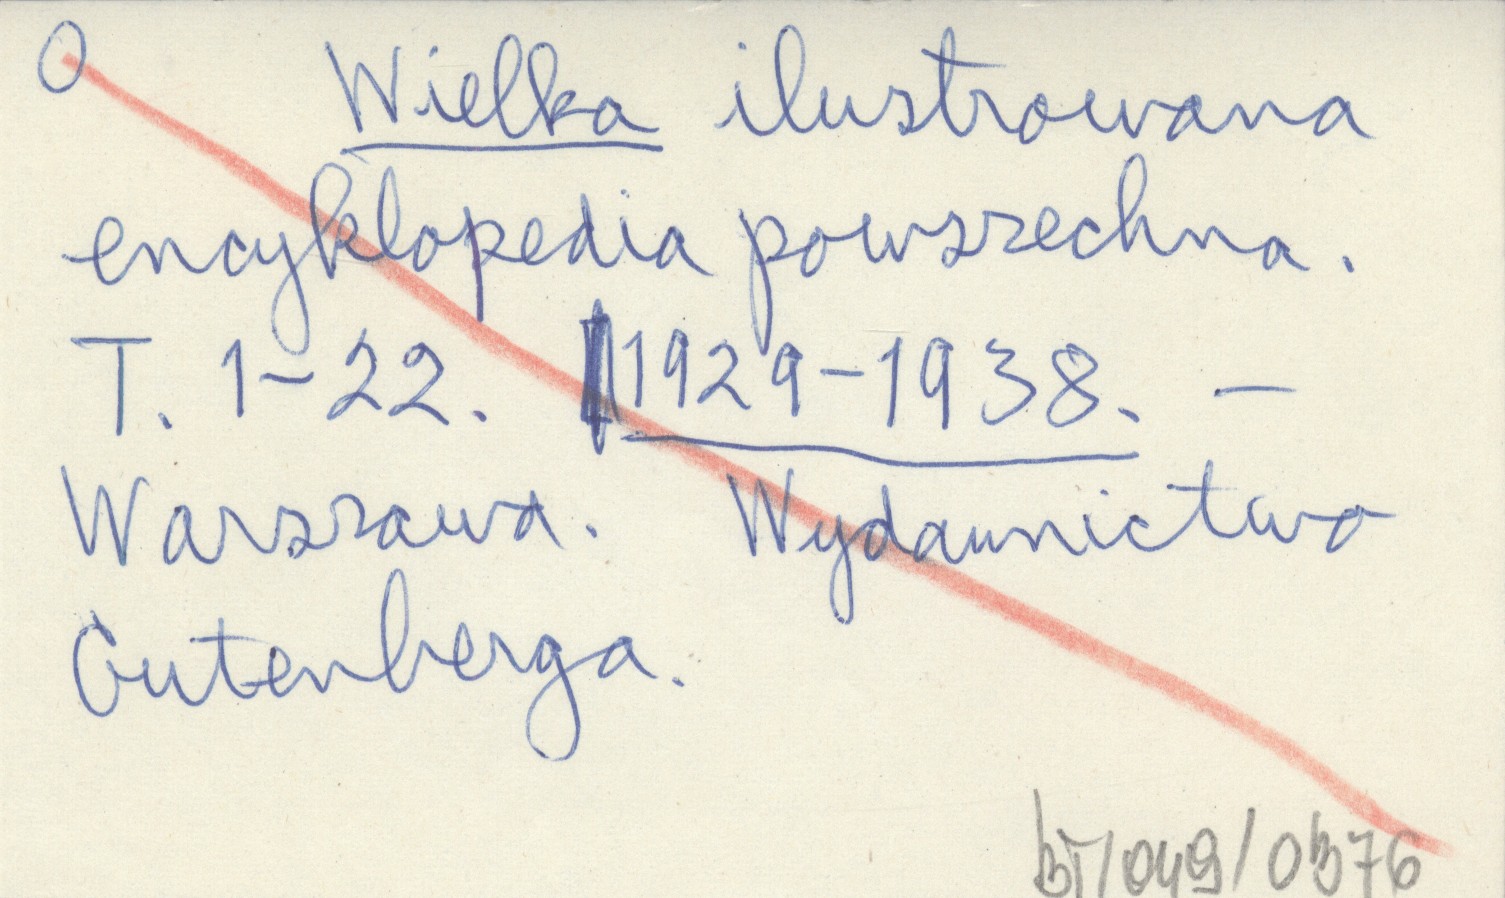 O Wielka ilustrowana
encyklopedia powszechna.
T. 1-22. 1929-1938. -
Warszawa. Wydawnictwo
Gutenberga.
bT/049/0376